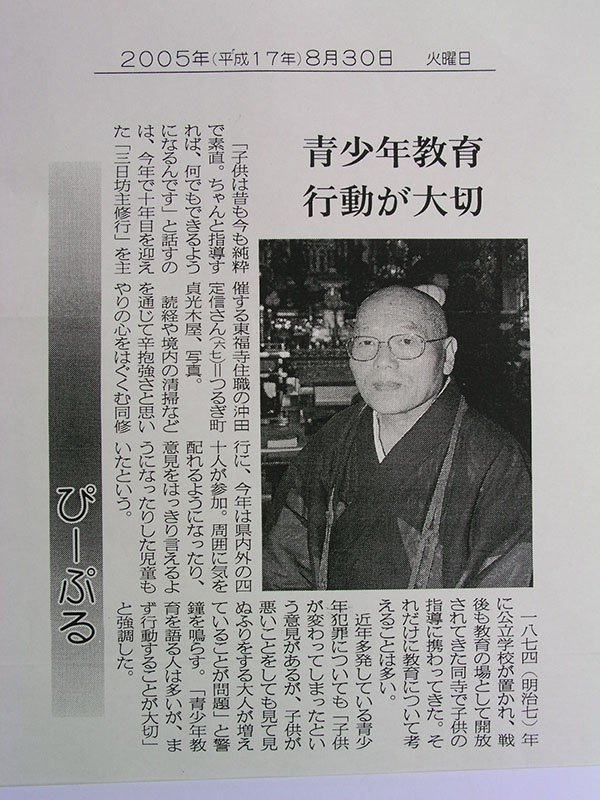 2005年(平成17年)8月30日　火曜日
青少年教育
行動が大切
「子供は昔も今も純粋
で素直。ちゃんと指導す
れば、何でもできるよう
になるんです」と話すの
は、今年で十年目を迎え
た「三日坊主修行」を主
催する東福寺住職の沖田
定信さん(六七)＝つるぎ町
貞光木屋、写真。
読経や境内の清掃など
を通じて辛抱強さと思い
やりの心をはぐくむ同修
行に、今年は県内外の四
十人が参加。周囲に気を
配れるようになったり、
意見をはっきり言えるよ
うになったりした児童も
いたという。
一八七四(明治七)年
に公立学校が置かれ、戦
後も教育の場として開放
されてきた同寺で子供の
指導に携わってきた。そ
れだけに教育について考
えることは多い。
近年多発している青少
年犯罪についても「子供
が変わってしまったとい
う意見があるが、子供が
悪いことをしても見て見
ぬふりをする大人が増え
ていることが問題」と警
鐘を鳴らす。「青少年教
育を語る人は多いが、ま
ず行動することが大切」
と強調した。
ぴーぷる